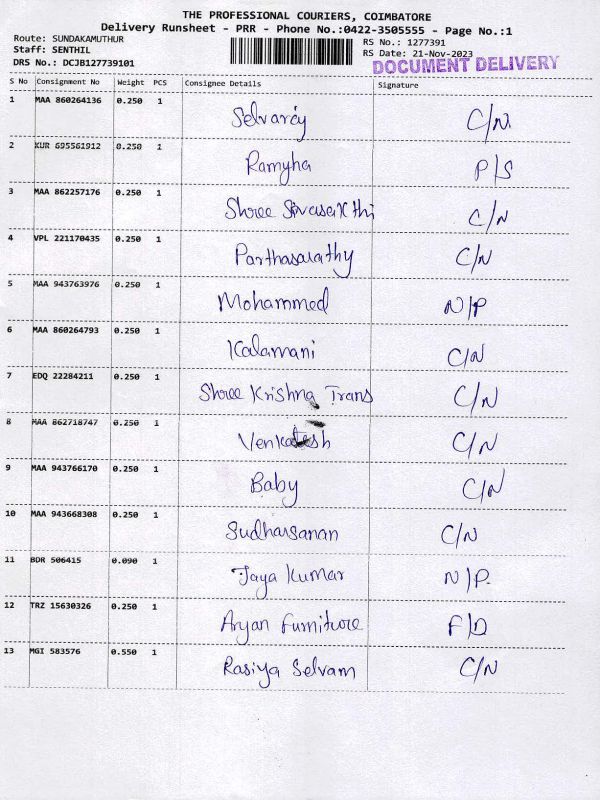 THE PROFESSIONAL COURIERS, COIMBATORE
Delivery Runsheet - PRR - Phone No.:0422-3505555 - Page No.:1
Route: SUNDAKAMUTHUR
Staff: SENTHIL
DRS No.: DCJB127739101
RS No.: 1277391
RS Date: 21-Nov-2023
DOCUMENT DELIVERY
S No Consignment No Weight PCS Consignee Details Signature
1 MAA 860264136 0.250 1 Selvaraj C/N.
2 KUR 695561912 0.250 1 Ramyha P/S
3 MAA 862257176 0.250 1 Shree Sivasakthi C/N
4 VPL 221170435 0.250 1 Parthasarathy C/N
5 MAA 943763976 0.250 1 Mohammed N/P
6 MAA 860264793 0.250 1 Kalamani C/N
7 EDQ 22284211 0.250 1 Shree Krishna Trans C/N
8 MAA 862718747 0.250 1 Venkatesh C/N
9 MAA 943766170 0.250 1 Baby C/N
10 MAA 943668308 0.250 1 Sudharsanan C/N
11 BDR 506415 0.090 1 Jaya Kumar N/P.
12 TRZ 15630326 0.250 1 Aryan Furniture F/D
13 MGI 583576 0.550 1 Rasiya Selvam C/N